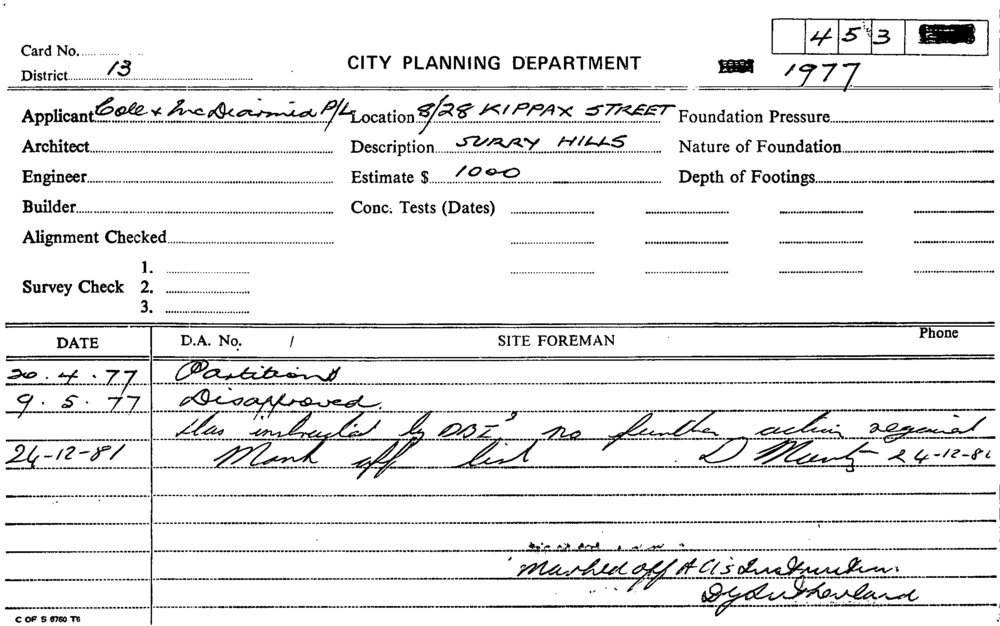 453
Card No.
District 13
CITY PLANNING DEPARTMENT
1977
Applicant Cole & McDiarmid P/L Location 8/28 KIPPAX STREET Foundation Pressure
Architect Description SURRY HILLS Nature of Foundation
Engineer Estimate $ 1000 Depth of Footings
Builder Conc. Tests (Dates)
Alignment Checked
1.
Survey Check 2.
3.
DATE D.A. No. / SITE FOREMAN Phone
20.4.77 Partitions
9.5.77 Disapproved.
As instructed by DBI no further action required
24-12-81 Mark off list D 24-12-81
Marked off A Instruction.
Sutherland
C OF S 6760 T6